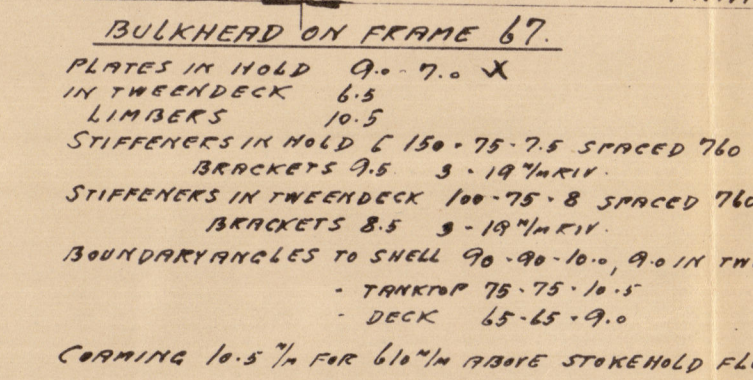 BULKHEAD ON FRAME 67.
PLATES IN HOLD 9.0 - 7.0 X
IN TWEENDECK 6.5
LIMBERS 10.5
STIFFENERS IN HOLD [ 150 - 75 - 7.5 SPACED 760
BRACKETS 9.5 3 - 19 m/m RIV.
STIFFENERS IN TWEENDECK 100 - 75 - 8 SPACED 760
BRACKETS 8.5 3 - 19 m/m RIV.
BOUNDARY ANGLES TO SHELL 90 - 90 - 10.0, 9.0 IN TW
- TANKTOP 75 - 75 - 10.5
- DECK 65 - 65 - 9.0
COAMING 10.5 m/m FOR 610 m/m ABOVE STOKEHOLD FL